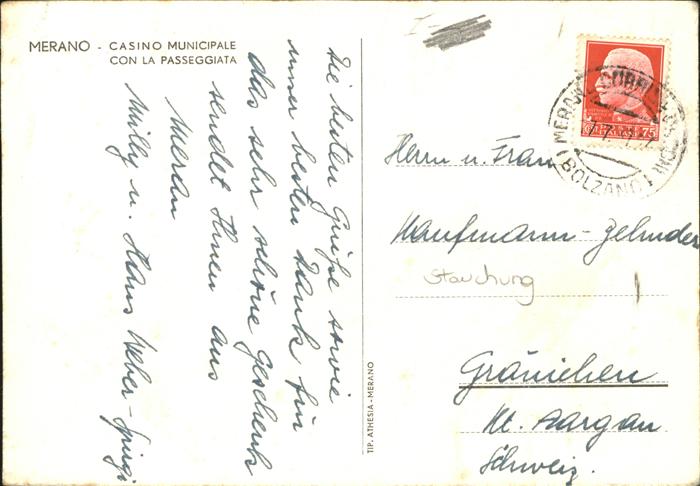 MERANO - CASINO MUNICIPALE
CON LA PASSEGGIATA
Die besten Grüße sowie
unser besten Dank für
das sehr schöne Geschenk
sendet Ihnen aus
Meran
Milly u. Hans Weber-
TIP. ATHESIA-MERANO
75
MERANO
(BOLZANO)
Herrn u. Frau
Kaufmann-Zehnder
Stauchung
Gränichen
Kt. Aargau
Schweiz.